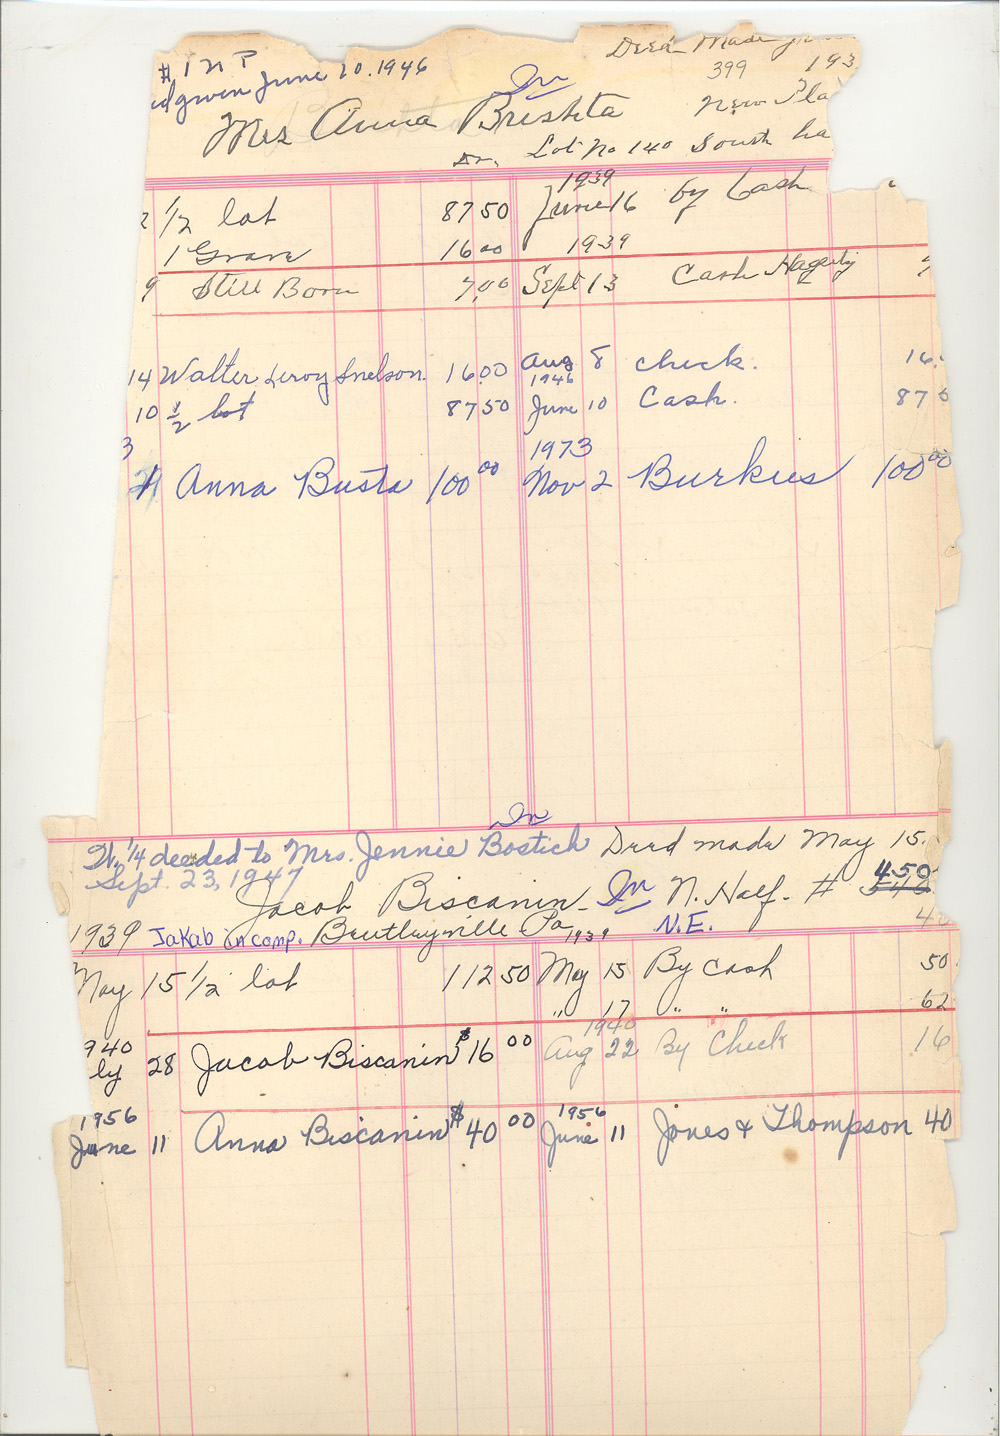 # 1 N P
given June 20. 1946
Deed Made
399 193
In
Mrs Anna Breshta
New Pla
Dr. Lot No 140 South ha
1939
2 1/2 lot 87 50 June 16 by Cash
1 Grave 16 00 1939
9 Still Born 7.00 Sept 13 Cash Hagerty
14 Walter Leroy Snelson. 16.00 Aug 8 check. 16.
1946
10 1/2 lot 87 50 June 10 Cash. 87
3 1973
Anna Busta 100 00 Nov 2 Burkus 100 00
In
W. 1/4 deeded to Mrs. Jennie Bostich Deed made May 15.
Sept. 23, 1947
Jacob Biscanin In N. Half. # 450
1939 Jakab in comp. Pa 1939 N.E. 4
May 15 1/2 lot 112 50 May 15 By Cash 50
" 17 " " 62
940 1940
ly 28 Jacob Biscanin $ 16 00 Aug 22 By Check 16
1956 1956
June 11 Anna Biscanin $ 40 00 June 11 Jones & Thompson 40